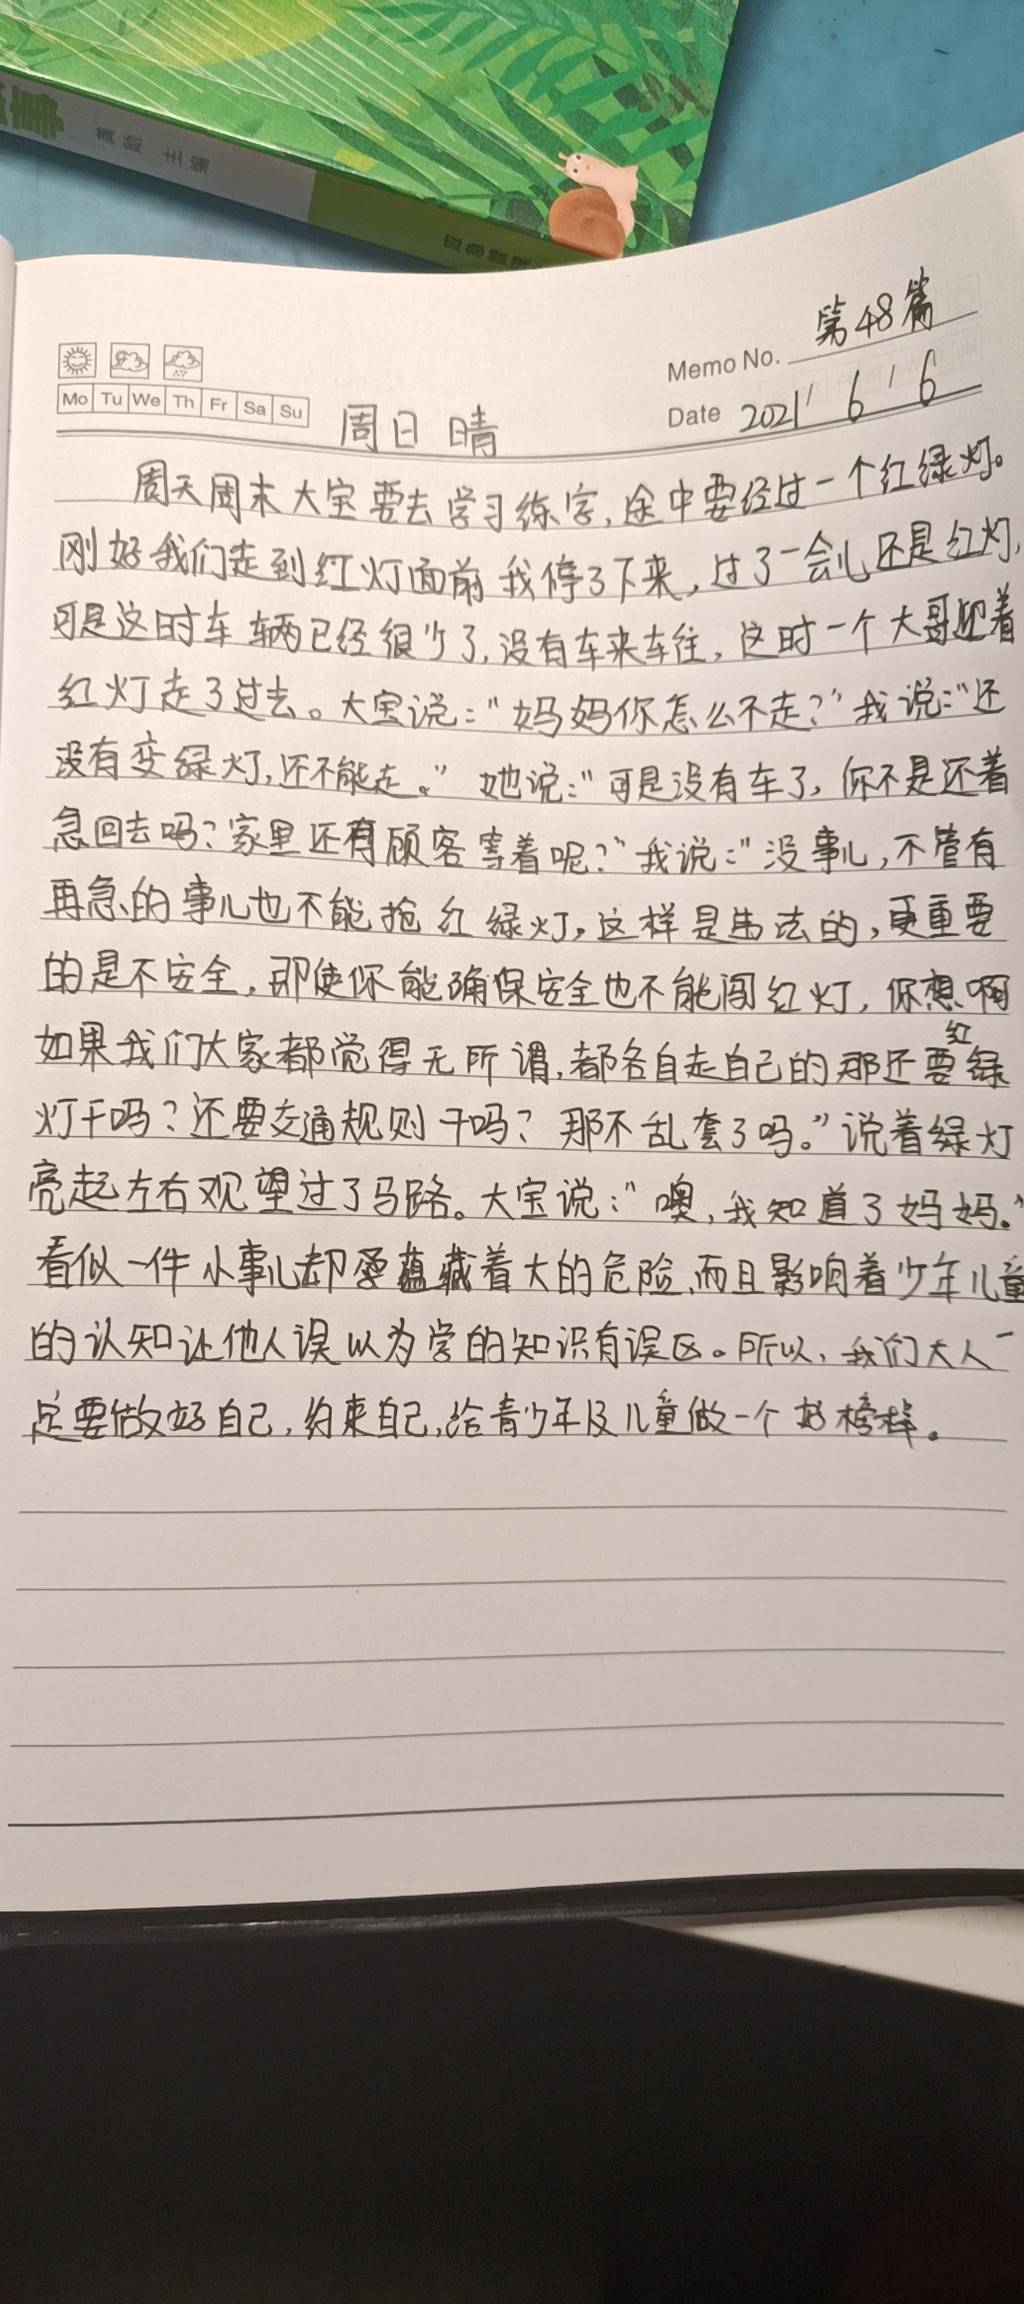 黄勋 主编
第48篇
Memo No.
Mo Tu We Th Fr Sa Su
Date 2021/6/6
周日 晴
周天周末大宝要去学习练字,途中要经过一个红绿灯。
刚好我们走到红灯面前我停了下来,过了一会儿还是红灯,
可是这时车辆已经很少了,没有车来车往,这时一个大哥迎着
红灯走了过去。大宝说:“妈妈你怎么不走?”我说:“还
没有变绿灯,还不能走。”她说:“可是没有车了,你不是还着
急回去吗?家里还有顾客等着呢?”我说:“没事儿,不管有
再急的事儿也不能抢红绿灯,这样是违法的,更重要
的是不安全,即使你能确保安全也不能闯红灯,你想啊
如果我们大家都觉得无所谓,都各自走自己的那还要红绿
灯干吗?还要交通规则干吗?那不乱套了吗。”说着绿灯
亮起左右观望过了马路。大宝说:“噢,我知道了妈妈。”
看似一件小事儿却蕴藏着大的危险,而且影响着少年儿童
的认知让他人误以为学的知识有误区。所以,我们大人一
定要做好自己,约束自己,给青少年及儿童做一个好榜样。